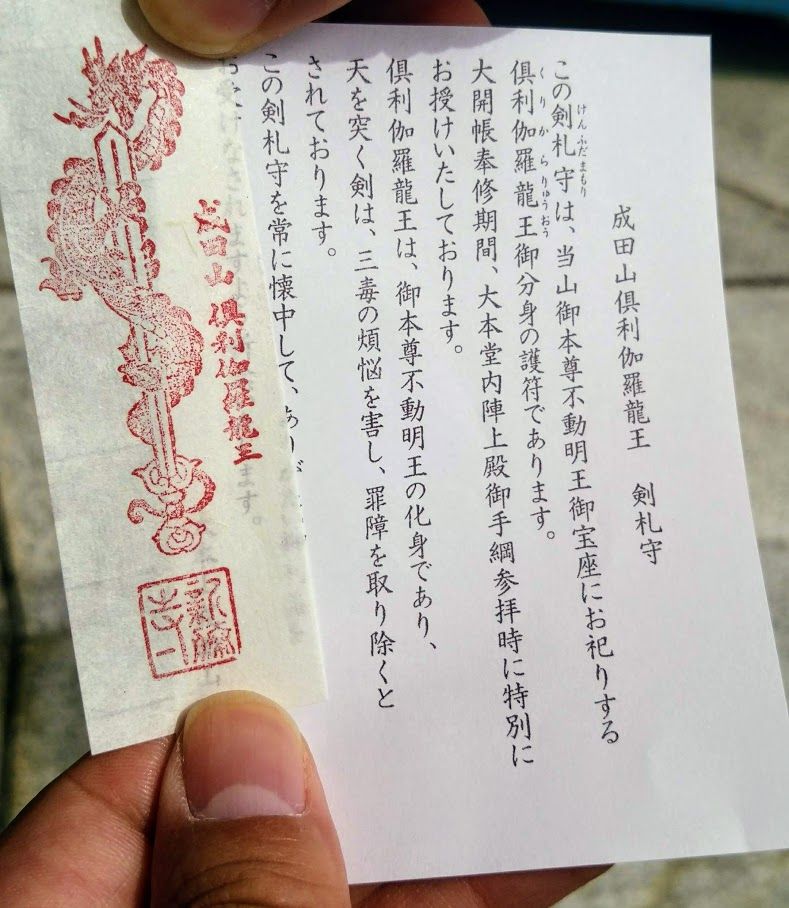 成田山倶利伽羅龍王 剣札守
この剣札守は、当山御本尊不動明王御宝座にお祀りする
けんふだまもり
倶利伽羅龍王御分身の護符であります。
くりからりゅうおう
大開帳奉修期間、大本堂内陣上殿御手綱参拝時に特別に
お授けいたしております。
倶利伽羅龍王は、御本尊不動明王の化身であり、
天を突く剣は、三毒の煩悩を害し、罪障を取り除くと
されております。
この剣札守を常に懐中して、ありが
お受けなされますよ
ます。
成田山 倶利伽羅龍王